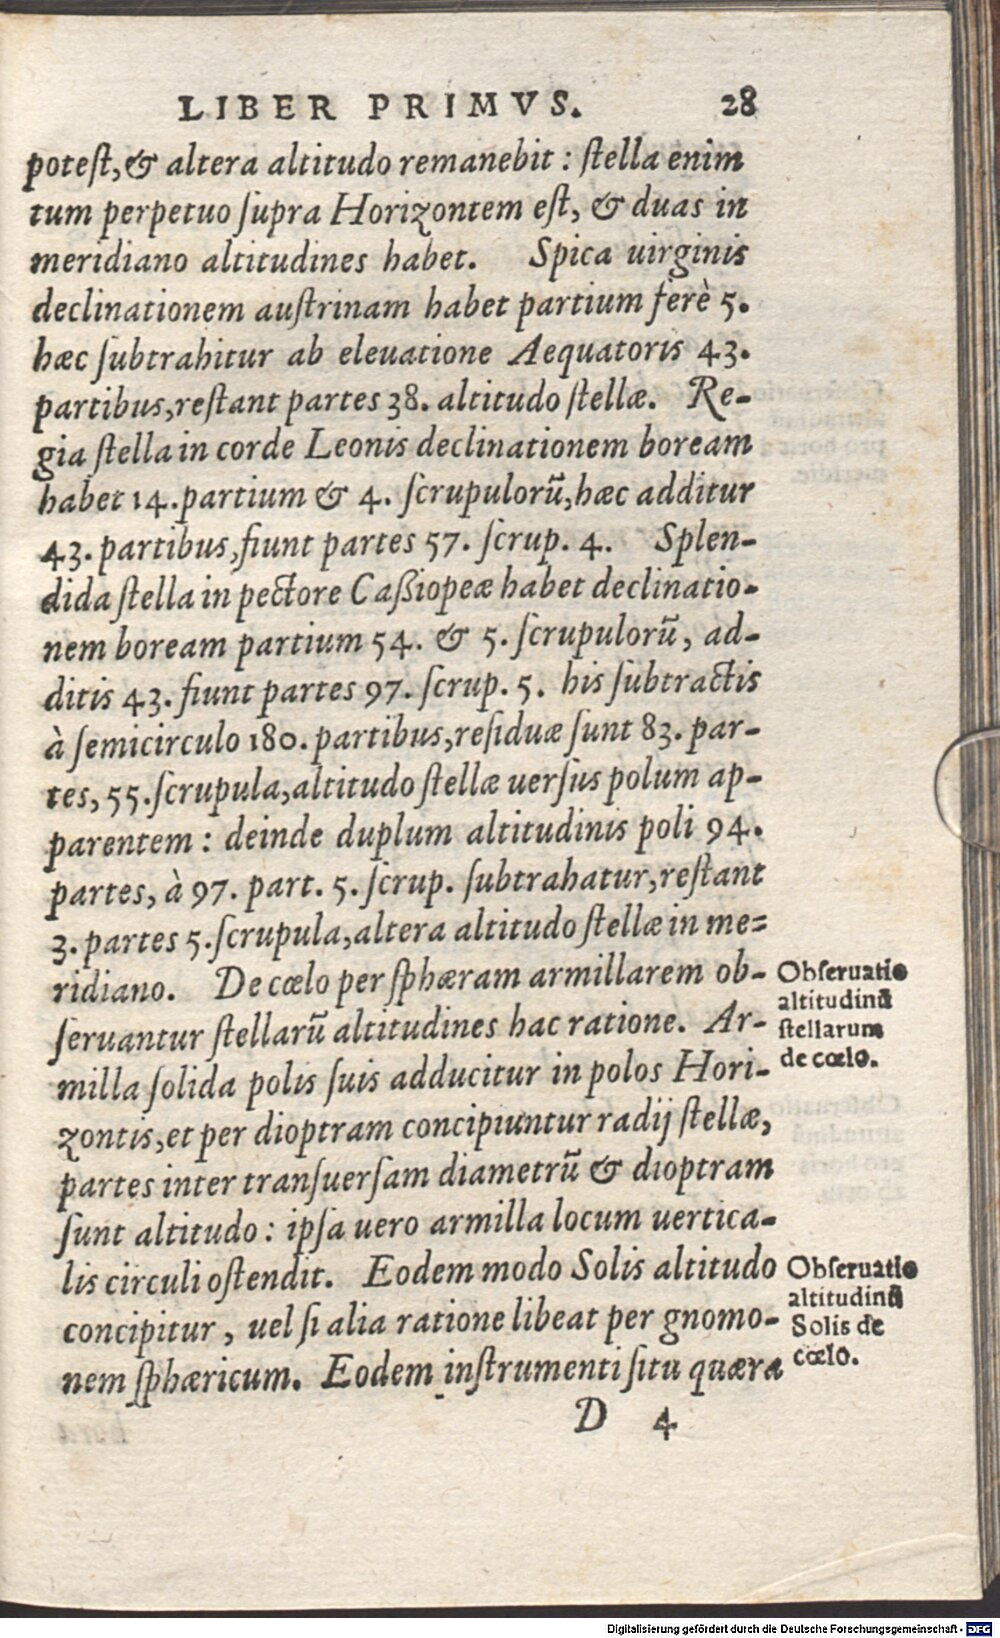 LIBER PRIMVS. 28
poteſt, & altera altitudo remanebit : ſtella enim
tum perpetuo ſupra Horizontem eſt, & duas in
meridiano altitudines habet. Spica uirginis
declinationem auſtrinam habet partium ferè 5.
hæc ſubtrahitur ab eleuatione Aequatoris 43.
partibus, reſtant partes 38. altitudo ſtellæ. Re-
gia ſtella in corde Leonis declinationem boream
habet 14. partium & 4. ſcrupulorũ, hæc additur
43. partibus, fiunt partes 57. ſcrup. 4. Splen-
dida ſtella in pectore Caßiopeæ habet declinatio-
nem boream partium 54. & 5. ſcrupulorũ, ad-
ditis 43. fiunt partes 97. ſcrup. 5. his ſubtractis
à ſemicirculo 180. partibus, reſiduæ ſunt 83. par-
tes, 55. ſcrupula, altitudo ſtellæ uerſus polum ap-
parentem : deinde duplum altitudinis poli 94.
partes, à 97. part. 5. ſcrup. ſubtrahatur, reſtant
3. partes 5. ſcrupula, altera altitudo ſtellæ in me=
ridiano. De cœlo per ſphæram armillarem ob-
ſeruantur ſtellarũ altitudines hac ratione. Ar-
milla ſolida polis ſuis adducitur in polos Hori-
zontis, et per dioptram concipiuntur radij ſtellæ,
partes inter tranſuerſam diametrũ & dioptram
ſunt altitudo : ipſa uero armilla locum uertica-
lis circuli oſtendit. Eodem modo Solis altitudo
concipitur, uel ſi alia ratione libeat per gnomo-
nem ſphæricum. Eodem inſtrumenti ſitu quæra
D 4
Obſeruatio
altitudinũ
ſtellarum
de cœlo.
Obſeruatio
altitudinũ
Solis de
cœlo.
Digitalisierung gefördert durch die Deutsche Forschungsgemeinschaft - DFG